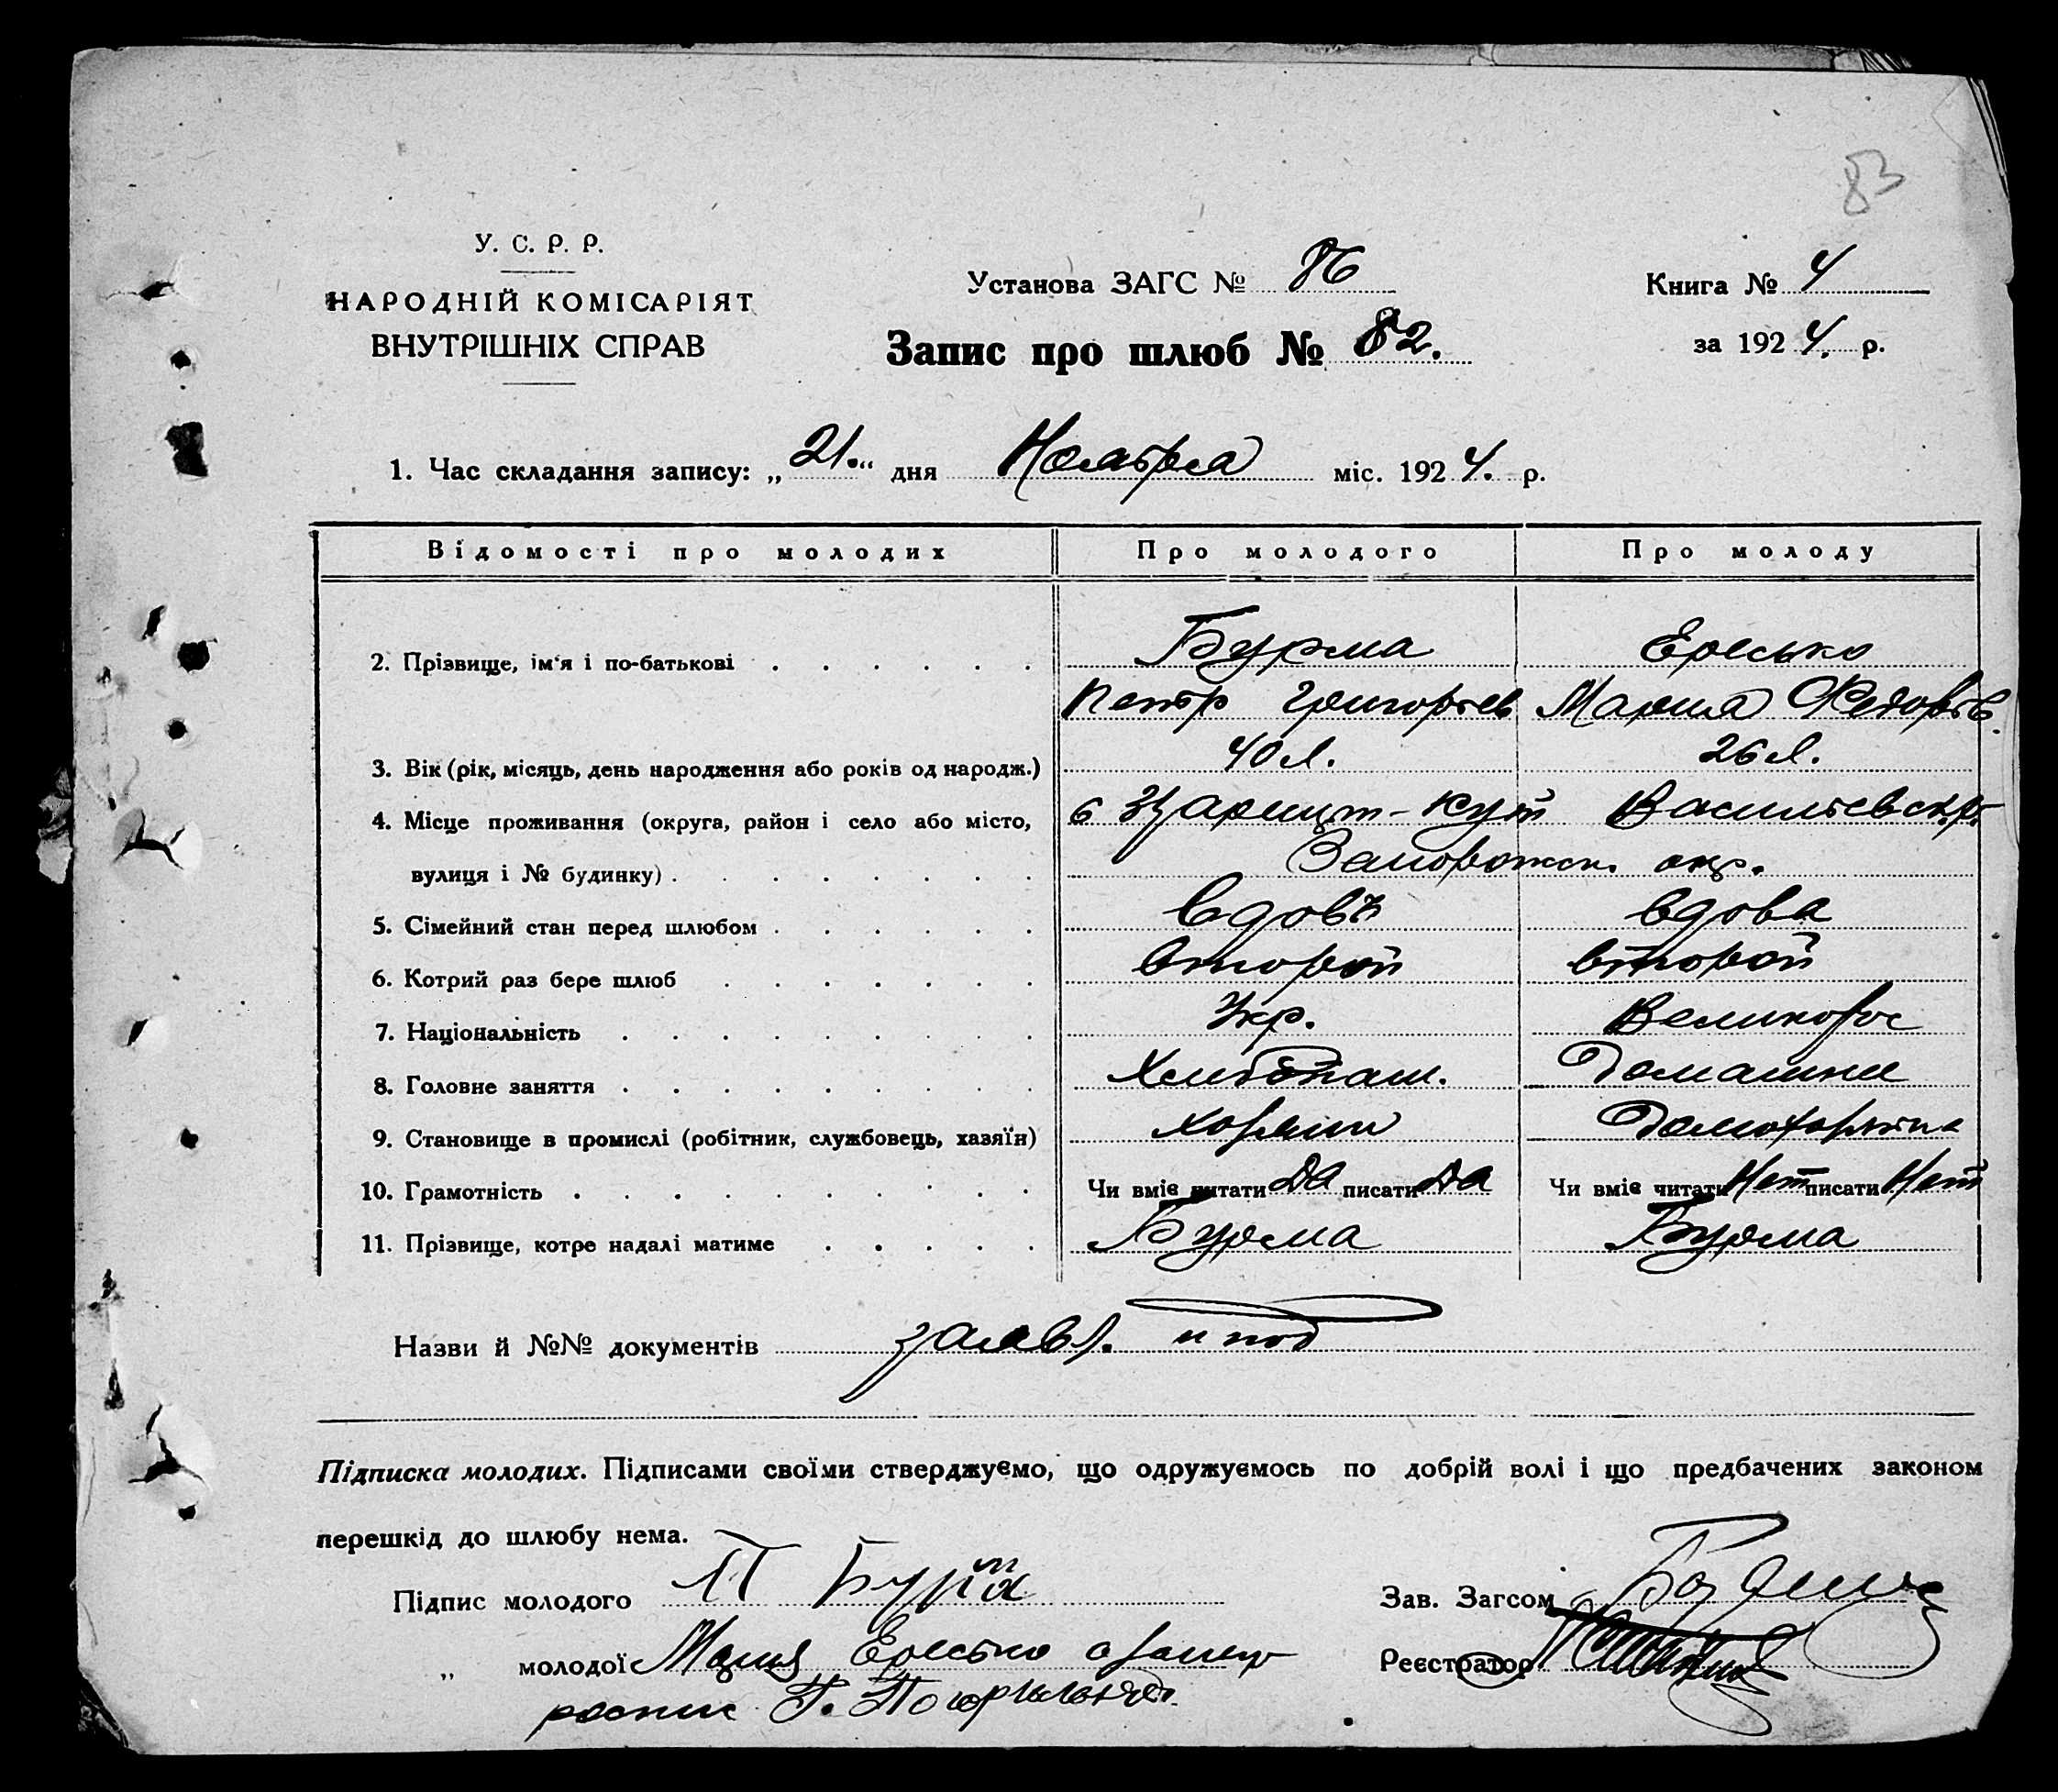 83
У. С. Р. Р.
НАРОДНІЙ КОМІСАРІЯТ
ВНУТРІШНІХ СПРАВ
Установа ЗАГС № 86
Книга № 4
Запис про шлюб № 82.
за 1924. р.
1. Час складання запису: „21." дня Ноября міс. 1924. р.
Відомості про молодих Про молодого Про молоду
2. Прізвище, ім'я і по-батькові Бурма Ересько
Петр Григорьев Мария Федоровъ.
3. Вік (рік, місяць, день народження або років од народж.) 40 л. 26 л.
4. Місце проживання (округа, район і село або місто, Царицын-Кут Васильевск. р.
вулиця і № будинку) Запорожск. окр.
5. Сімейний стан перед шлюбом вдовъ вдова
6. Котрий раз бере шлюб второй второй
7. Національність Укр. Великорос
8. Головне заняття Хлибопаш. Домашнее
9. Становище в промислі (робітник, службовець, хазяїн)
10. Грамотність Чи вміє читати Да писати Да Чи вміє читати Нет писати Нет
11. Прізвище, котре надалі матиме Бурма Бурма
Назви й №№ документів заявл. и под
Підписка молодих. Підписами своїми стверджуємо, що одружуємось по добрій волі і що предбачених законом
перешкід до шлюбу нема.
Підпис молодого П Бурма
Зав. Загсом
„ молодої Мария Ересько а за неи
Реєстратор
роспис